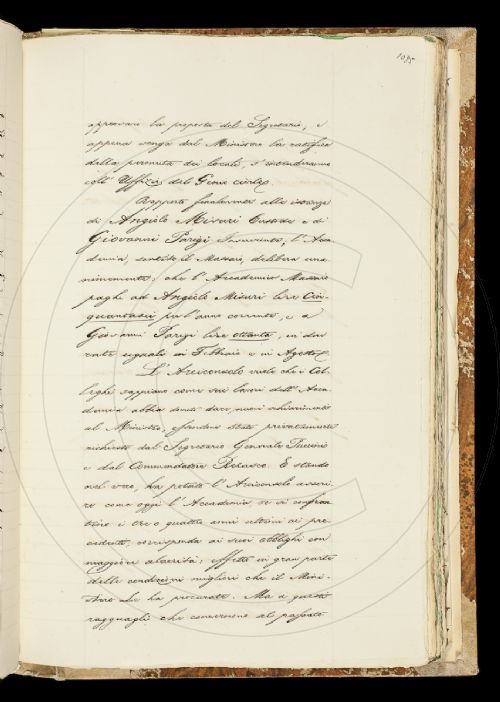 1095
approvare la proposta del Segretario, e
appena venga dal Ministero la ratifica
della permuta dei locali s'intenderanno
coll'Uffizio del Genio civile.
Rapporto finalmente alle istanze
di Angiolo Misuri Custode e di
Giovanni Parigi Inserviente, l'Acca-
demia, sentito il Massaio, delibera una-
nimemente: che l'Accademia Massaio
paghi ad Angiolo Misuri lire Cin-
quantasei per l'anno corrente, e a
Giovanni Parigi lire ottanta, in due
rate uguali in Febbraio e in Agosto.
L'Arciconsolo vuole che i Col-
leghi sappiano come sui lavori dell'Acca-
demia abbia dovuto dare nuovi schiarimenti
al Ministro, essendone stato privatamente
richiesto dal Segretario Generale
e dal Commendatore. E stando
nel vero, ha potuto l'Arciconsolo asseri-
re come oggi l'Accademia, se si confron-
tino i tre o quattro anni ultimi ai pre-
cedenti, corrisponda ai suoi obblighi con
maggiore alacrità; effetto in gran parte
delle condizioni migliori che il Mini-
stero le ha procurate. Ma a questi
ragguagli che concernono al passato